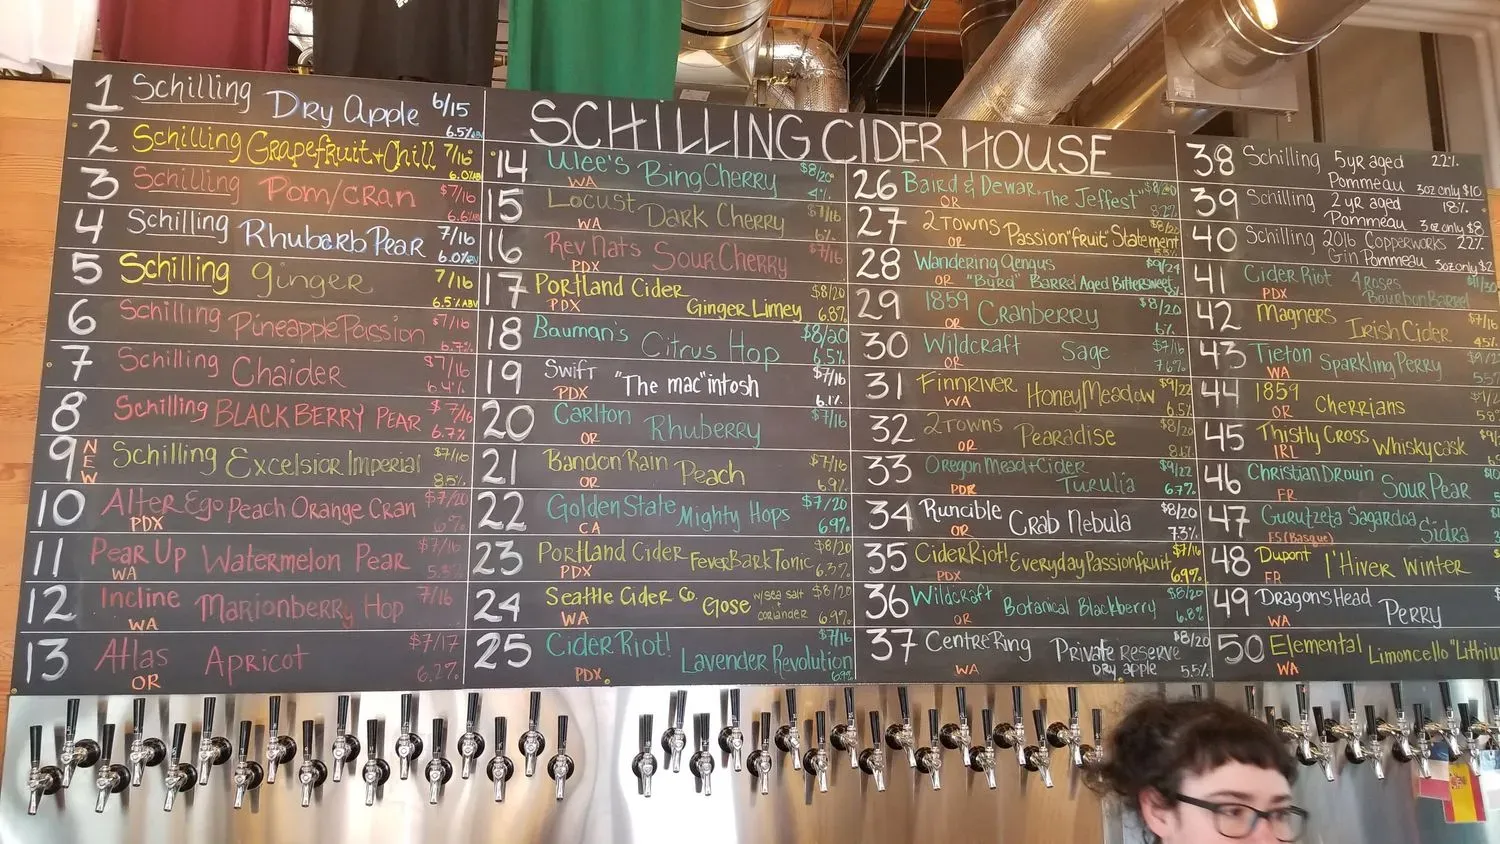 SCHILLING CIDER HOUSE
1 Schilling Dry Apple 6/15
6.5% ABV
2 Schilling Grapefruit + Chill 7/16
6.0% ABV
3 Schilling Pom/Cran $7/16
6.6% ABV
4 Schilling Rhubarb Pear 7/16
6.0% ABV
5 Schilling Ginger 7/16
6.5% ABV
6 Schilling Pineapple Passion $7/16
6.7%
7 Schilling Chaider $7/16
6.4%
8 Schilling BLACKBERRY PEAR $7/16
6.7%
9 NEW Schilling Excelsior Imperial $7/16
8.5%
10 Alter Ego Peach Orange Cran $7/20
PDX 6%
11 Pear Up Watermelon Pear $7/16
WA
12 Incline Marionberry Hop 7/16
WA
13 Atlas Apricot $7/17
OR 6.2%
14 Wlee's Bing Cherry $8/20
WA 4%
15 Locust Dark Cherry $7/16
WA 6%
16 Rev Nats Sour Cherry $7/16
PDX
17 Portland Cider $8/20
PDX Ginger Limey 6.8%
18 Bauman's Citrus Hop $8/20
6.5%
19 Swift "The mac"intosh $7/16
PDX 6.1%
20 Carlton Rhuberry $7/16
OR
21 Bandon Rain Peach $7/16
OR 6.9%
22 Golden State Mighty Hops $7/20
CA 6.9%
23 Portland Cider Fever Bark Tonic $8/20
PDX 6.3%
24 Seattle Cider Co. Gose w/sea salt + coriander $8/20
WA 6.9%
25 Cider Riot! $7/16
PDX Lavender Revolution 6.9%
26 Baird & Dewar "The Jeffest" $8/20
OR 8.2%
27 2 Towns $8/20
OR Passion"fruit"Statement
28 Wandering Aengus $9/24
OR "Byrd" Barrel Aged Bittersweet
29 1859 Cranberry $8/20
OR 6%
30 Wildcraft Sage $7/16
OR 7.6%
31 Finnriver Honey Meadow $9/22
WA 6.5%
32 2 Towns Pearadise $8/20
OR
33 Oregon Mead + Cider $9/22
PDX Turulia 6.7%
34 Runcible Crab Nebula $8/20
OR 7.3%
35 Cider Riot! Everyday Passionfruit $7/16
PDX 6.9%
36 Wildcraft Botanical Blackberry $8/20
OR 6.8%
37 Centre Ring Private Reserve $8/20
WA Dry Apple 5.5%
38 Schilling 5 yr aged 22%
Pommeau 3oz only $10
39 Schilling 2 yr aged 18%
Pommeau 3oz only $8
40 Schilling 2016 Copperworks 22%
Gin Pommeau 3oz only $2
41 Cider Riot 4 Roses $11/30
PDX Bourbon Barrel
42 Magners Irish Cider $7/16
4.5%
43 Tieton Sparkling Perry
WA
44 1859 Cherrians
OR
45 Thistly Cross Whisky cask
IRL
46 Christian Drouin Sour Pear
FR
47 Gurutzeta Sagardoa Sidra
ES (Basque)
48 Dupont l'Hiver Winter
FR
49 Dragon's Head Perry
WA
50 Elemental Limoncello "Lithiu
WA